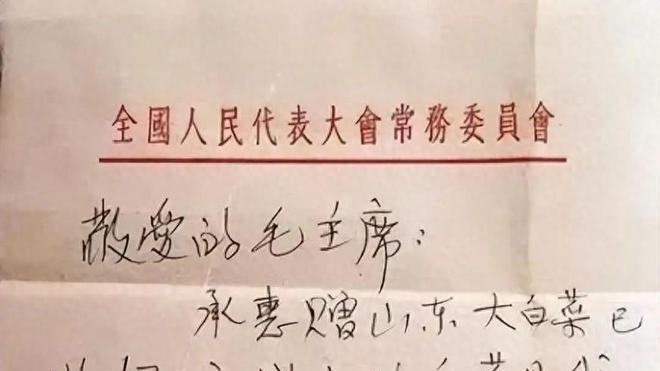 全國人民代表大會常務委員會
敬爱的毛主席:
承惠赠山东大白菜已